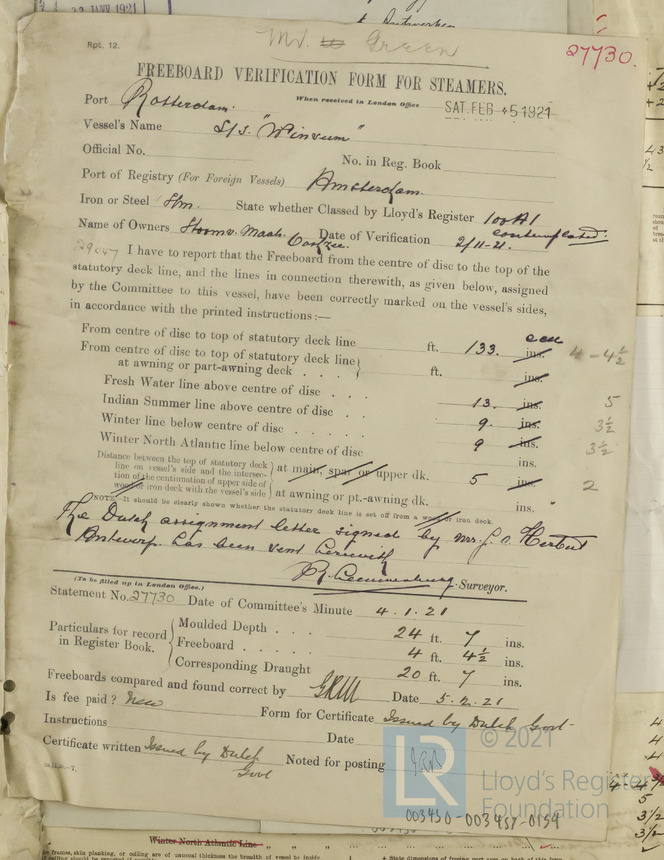 22 JANV 1921
Rpt. 12.
Mr. Green
27730.
FREEBOARD VERIFICATION FORM FOR STEAMERS.
Port Rotterdam. When received in London Office SAT. FEB 5 1921
Vessel's Name S/S. "Winsum"
Official No. No. in Reg. Book
Port of Registry (For Foreign Vessels) Amsterdam.
Iron or Steel Stm. State whether Classed by Lloyd's Register 100A1 contemplated.
Name of Owners Stoomv. Maats. Date of Verification 2/11-21.
29047 I have to report that the Freeboard from the centre of disc to the top of the
statutory deck line, and the lines in connection therewith, as given below, assigned
by the Committee to this vessel, have been correctly marked on the vessel's sides,
in accordance with the printed instructions:—
From centre of disc to top of statutory deck line ft. 133. ins. 4 - 4½
From centre of disc to top of statutory deck line at awning or part-awning deck . . . ft. ins.
Fresh Water line above centre of disc . . .
Indian Summer line above centre of disc . . 13. ins. 5
Winter line below centre of disc . . . 9. ins. 3½
Winter North Atlantic line below centre of disc 9 ins. 3½
ins.
Distance between the top of statutory deck
line on vessel's side and the intersec-
tion of the continuation of upper side of
wood or iron deck with the vessel's side
at main, spar, or upper dk. 5 ins. 2
at awning or pt.-awning dk. ins.
NOTE—It should be clearly shown whether the statutory deck line is set off from a wood or iron deck.
The Dutch assignment letter signed by Mr. J. A. Herbert
Antwerp. has been sent herewith
Surveyor.
(To be filled up in London Office.)
Statement No. 27730 Date of Committee's Minute 4.1.21
Particulars for record in Register Book.
Moulded Depth . . . . 24 ft. 7 ins.
Freeboard . . . . . 4 ft. 4½ ins.
Corresponding Draught 20 ft. 7 ins.
Freeboards compared and found correct by Date 5.2.21
Is fee paid? New Form for Certificate Issued by Dutch Govt
Instructions Date
Certificate written Issued by Dutch Govt Noted for posting
© 2021
LR
Lloyd's Register
Foundation
003450-003457-0154
Winter North Atlantic Line